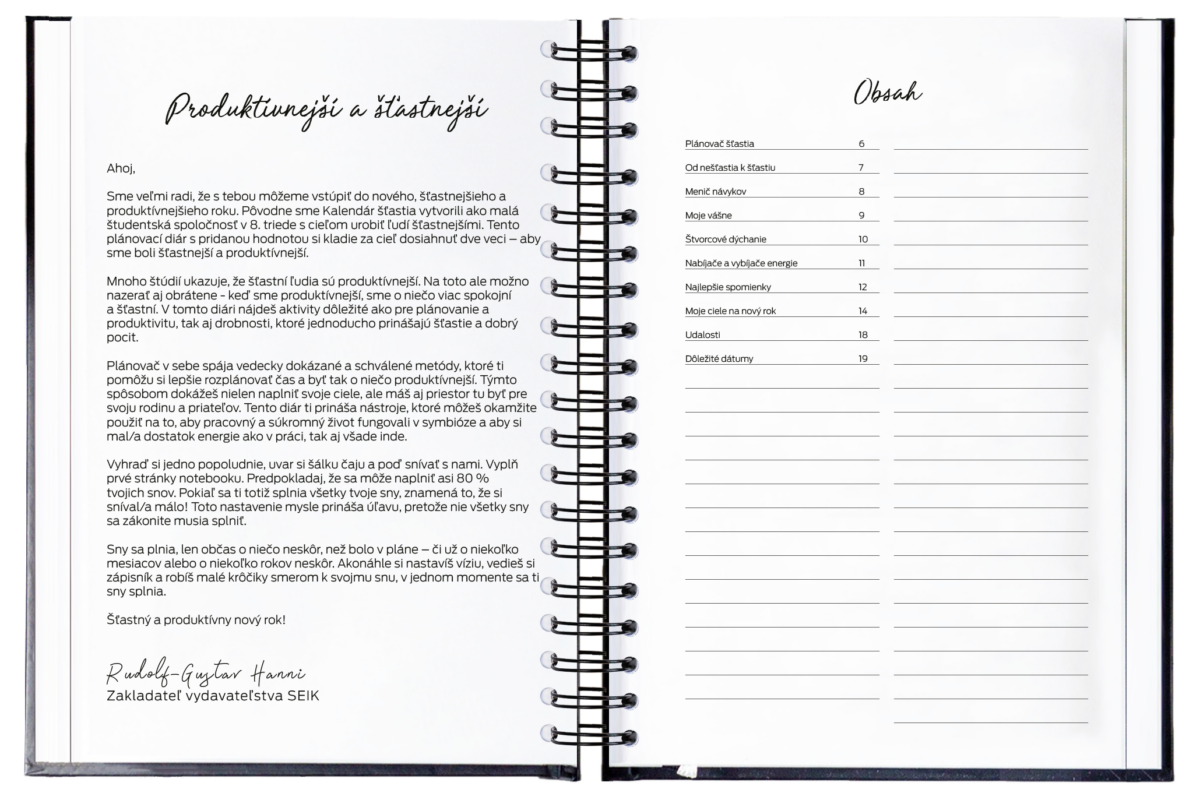 Produktívnejší a šťastnejší
Ahoj,
Sme veľmi radi, že s tebou môžeme vstúpiť do nového, šťastnejšieho a
produktívnejšieho roku. Pôvodne sme Kalendár šťastia vytvorili ako malá
študentská spoločnosť v 8. triede s cieľom urobiť ľudí šťastnejšími. Tento
plánovací diár s pridanou hodnotou si kladie za cieľ dosiahnuť dve veci – aby
sme boli šťastnejší a produktívnejší.
Mnoho štúdií ukazuje, že šťastní ľudia sú produktívnejší. Na toto ale možno
nazerať aj obrátene - keď sme produktívnejší, sme o niečo viac spokojní
a šťastní. V tomto diári nájdeš aktivity dôležité ako pre plánovanie a
produktivitu, tak aj drobnosti, ktoré jednoducho prinášajú šťastie a dobrý
pocit.
Plánovač v sebe spája vedecky dokázané a schválené metódy, ktoré ti
pomôžu si lepšie rozplánovať čas a byť tak o niečo produktívnejší. Týmto
spôsobom dokážeš nielen naplniť svoje ciele, ale máš aj priestor tu byť pre
svoju rodinu a priateľov. Tento diár ti prináša nástroje, ktoré môžeš okamžite
použiť na to, aby pracovný a súkromný život fungovali v symbióze a aby si
mal/a dostatok energie ako v práci, tak aj všade inde.
Vyhraď si jedno popoludnie, uvar si šálku čaju a poď snívať s nami. Vyplň
prvé stránky notebooku. Predpokladaj, že sa môže naplniť asi 80 %
tvojich snov. Pokiaľ sa ti totiž splnia všetky tvoje sny, znamená to, že si
sníval/a málo! Toto nastavenie mysle prináša úľavu, pretože nie všetky sny
sa zákonite musia splniť.
Sny sa plnia, len občas o niečo neskôr, než bolo v pláne – či už o niekoľko
mesiacov alebo o niekoľko rokov neskôr. Akonáhle si nastavíš víziu, vedieš si
zápisník a robíš malé krôčiky smerom k svojmu snu, v jednom momente sa ti
sny splnia.
Šťastný a produktívny nový rok!
Rudolf-Gustav Hanni
Zakladateľ vydavateľstva SEIK
Obsah
Plánovač šťastia 6
Od nešťastia k šťastiu 7
Menič návykov 8
Moje vášne 9
Štvorcové dýchanie 10
Nabíjače a vybíjače energie 11
Najlepšie spomienky 12
Moje ciele na nový rok 14
Udalosti 18
Dôležité dátumy 19